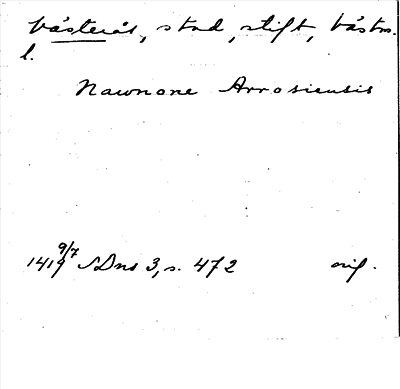 Västerås, stad, stift, Västm.
l.
Nawnone Arosiensis
1419 9/7 SDns 3, s. 472 orig.